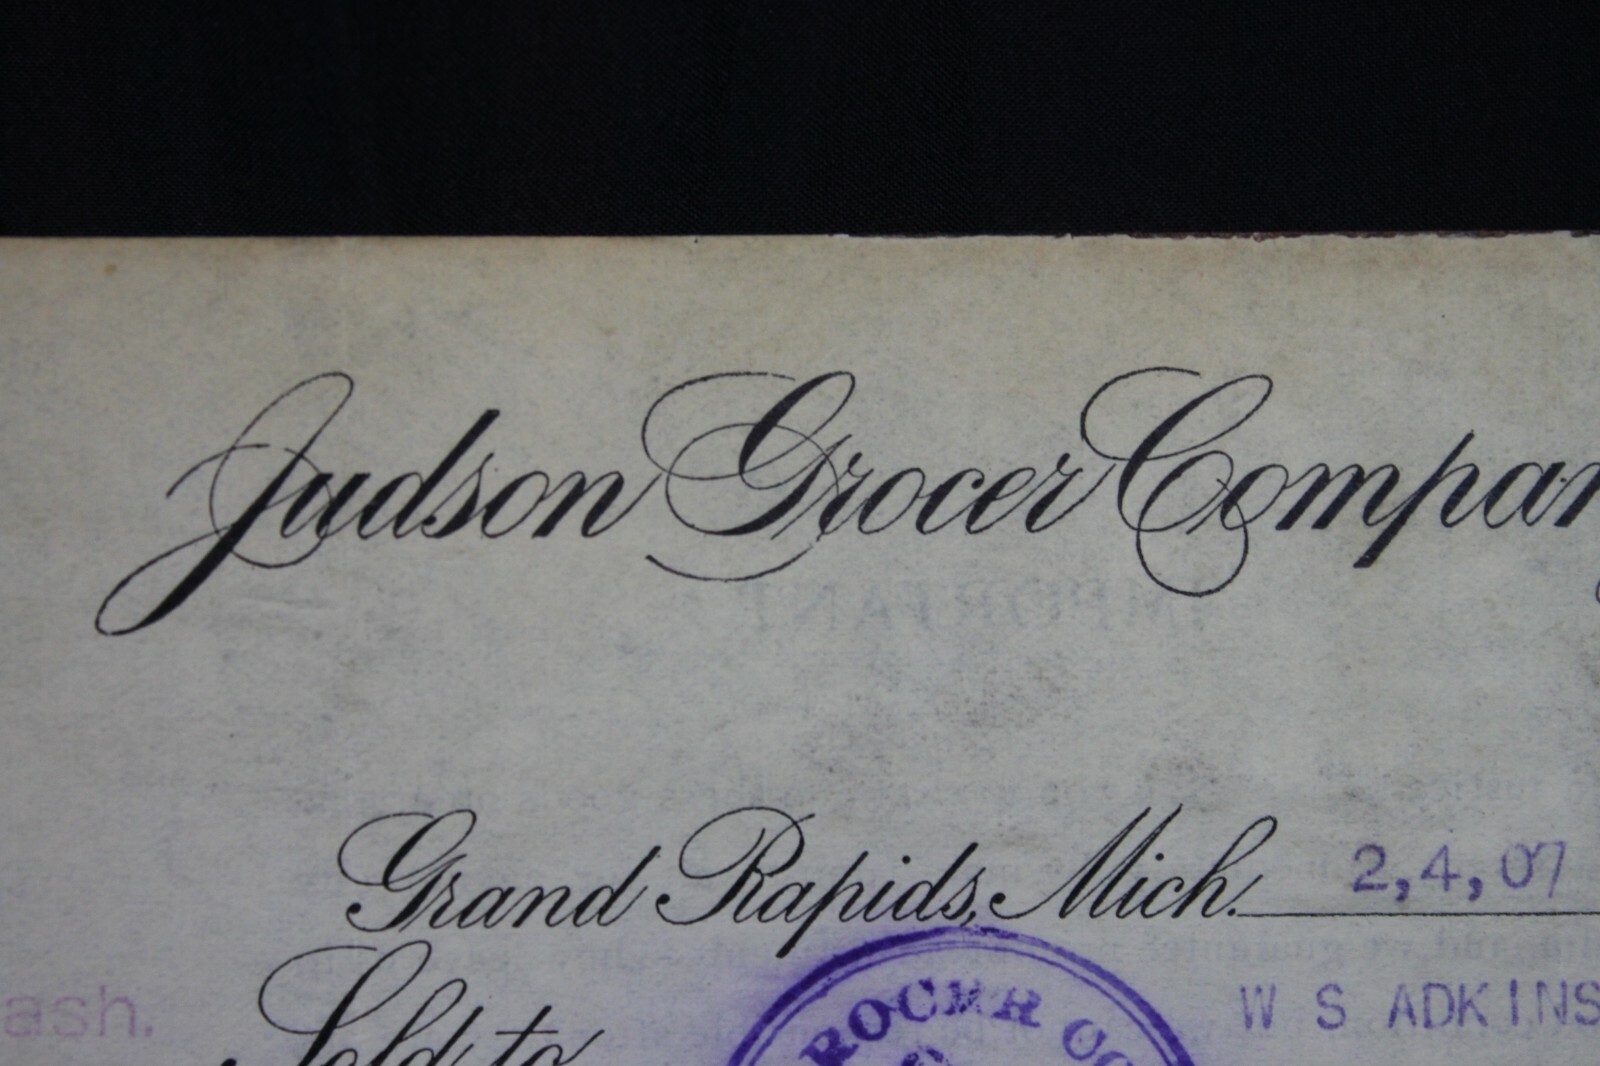 Judson Grocer Compan
IMPORTANT
Grand Rapids, Mich. 2,4,07
ROCER CO
W S ADKINS
ash.
Sold to